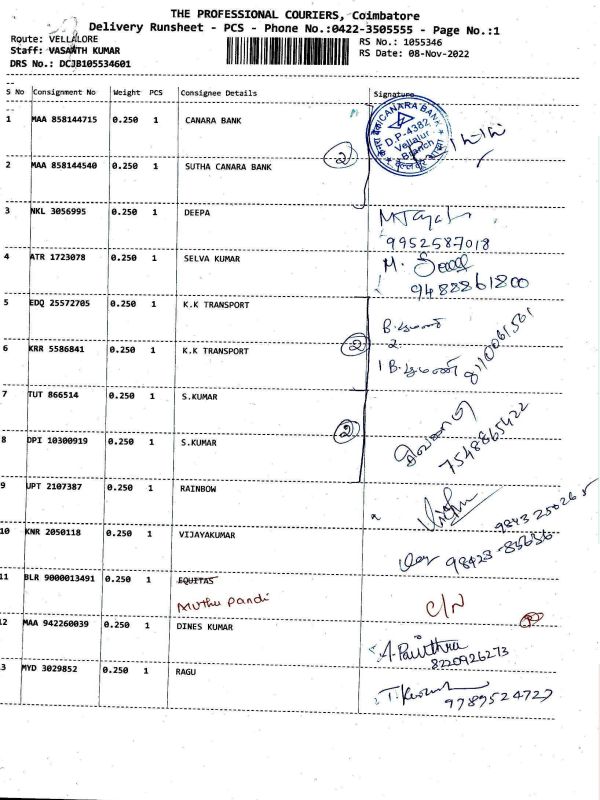 THE PROFESSIONAL COURIERS, Coimbatore
Delivery Runsheet - PCS - Phone No.:0422-3505555 - Page No.:1
Route: VELLALORE
RS No.: 1055346
Staff: VASANTH KUMAR
RS Date: 08-Nov-2022
DRS No.: DCJB105534601
S No Consignment No Weight PCS Consignee Details Signature
1 MAA 858144715 0.250 1 CANARA BANK
CANARA BANK
D.P-4382
Vellalur
Branch
2
2 MAA 858144540 0.250 1 SUTHA CANARA BANK
3 NKL 3056995 0.250 1 DEEPA
9952587018
4 ATR 1723078 0.250 1 SELVA KUMAR M.
9488861800
5 EDQ 25572705 0.250 1 K.K TRANSPORT
2
6 KRR 5586841 0.250 1 K.K TRANSPORT
8110061561
7 TUT 866514 0.250 1 S.KUMAR
2
8 DPI 10300919 0.250 1 S.KUMAR
7548865422
9 UPT 2107387 0.250 1 RAINBOW
10 KNR 2050118 0.250 1 VIJAYAKUMAR
11 BLR 9000013491 0.250 1 EQUITAS
Muthu Pandi C/N
12 MAA 942260039 0.250 1 DINES KUMAR
A. Pavithra
8220926273
3 MYD 3029852 0.250 1 RAGU
9789524727